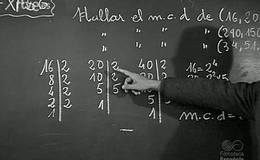 Hallar el m.c.d de (16,20
" " (240,150
" " (34,51,
16 | 2 20 | 2 40 | 2 16=2⁴
8 | 2 10 | 2 20
4 | 2 5 | 5
2 | 2 1 5
1 1 m.c.d=
Filmoteca
Española